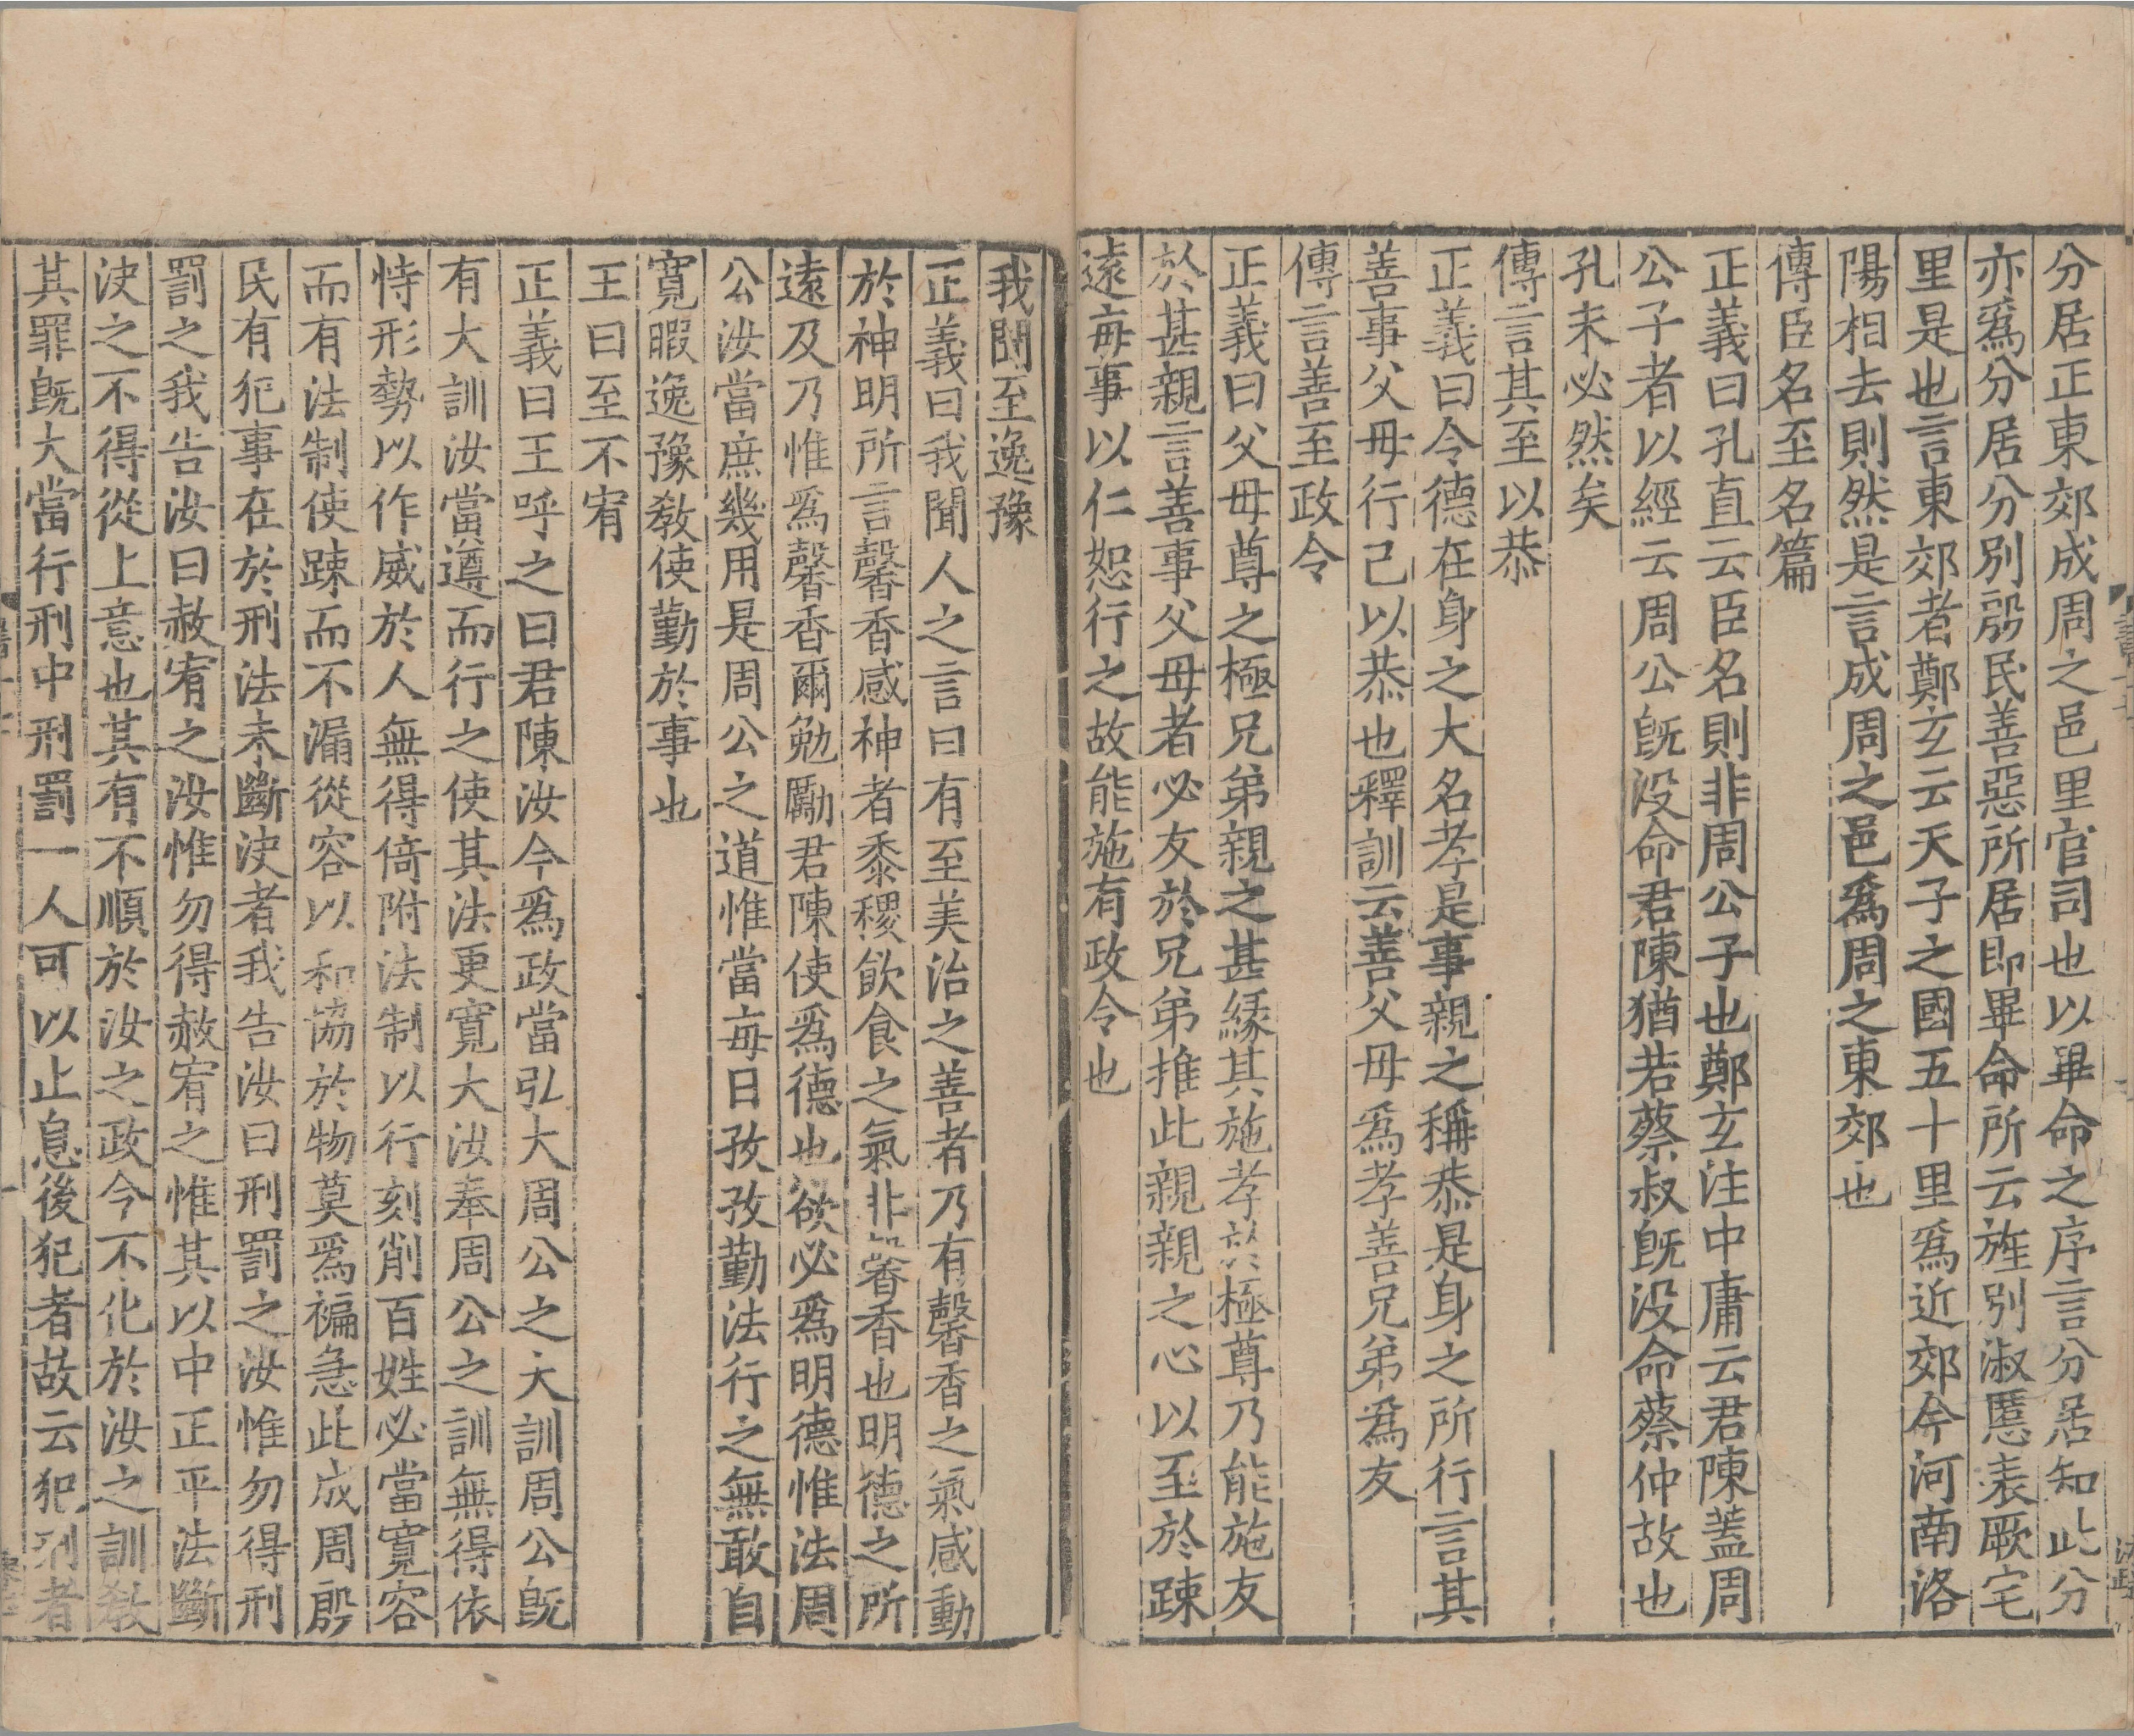 分居正東郊成周之邑里官司也以畢命之序言分居知此分
亦爲分居分別殷民善惡所居即畢命所云旌別淑慝表厥宅
里是也言東郊者鄭玄云天子之國五十里爲近郊今河南洛
陽相去則然是言成周之邑爲周之東郊也
傳臣名至名篇
正義曰孔直云臣名則非周公子也鄭玄注中庸云君陳蓋周
公子者以經云周公旣没命君陳猶若蔡叔旣没命蔡仲故也
孔未必然矣
傳言其至以恭
正義曰令德在身之大名孝是事親之稱恭是身之所行言其
善事父母行己以恭也釋訓云善父母爲孝善兄弟爲友
傳言善至政令
正義曰父母尊之極兄弟親之甚緣其施孝於極尊乃能施友
於甚親言善事父母者必友於兄弟推此親親之心以至於踈
遠每事以仁恕行之故能施有政令也
我聞至逸豫
正義曰我聞人之言曰有至美治之善者乃有馨香之氣感動
於神明所言馨香感神者黍稷飲食之氣非馨香也明德之所
遠及乃惟爲馨香爾勉勵君陳使爲德也欲必爲明德惟法周
公汝當庶幾用是周公之道惟當每日孜孜勤法行之無敢自
寬暇逸豫敎使勤於事也
王曰至不宥
正義曰王呼之曰君陳汝今爲政當弘大周公之大訓周公旣
有大訓汝當遵而行之使其法更寬大汝奉周公之訓無得依
恃形勢以作威於人無得倚附法制以行刻削百姓必當寬容
而有法制使踈而不漏從容以和協於物莫爲褊急此成周殷
民有犯事在於刑法未斷決者我告汝曰刑罰之汝惟勿得刑
罰之我告汝曰赦宥之汝惟勿得赦宥之惟其以中正平法斷
決之不得從上意也其有不順於汝之政令不化於汝之訓敎
其罪旣大當行刑中刑罰一人可以止息後犯者故云犯刑者